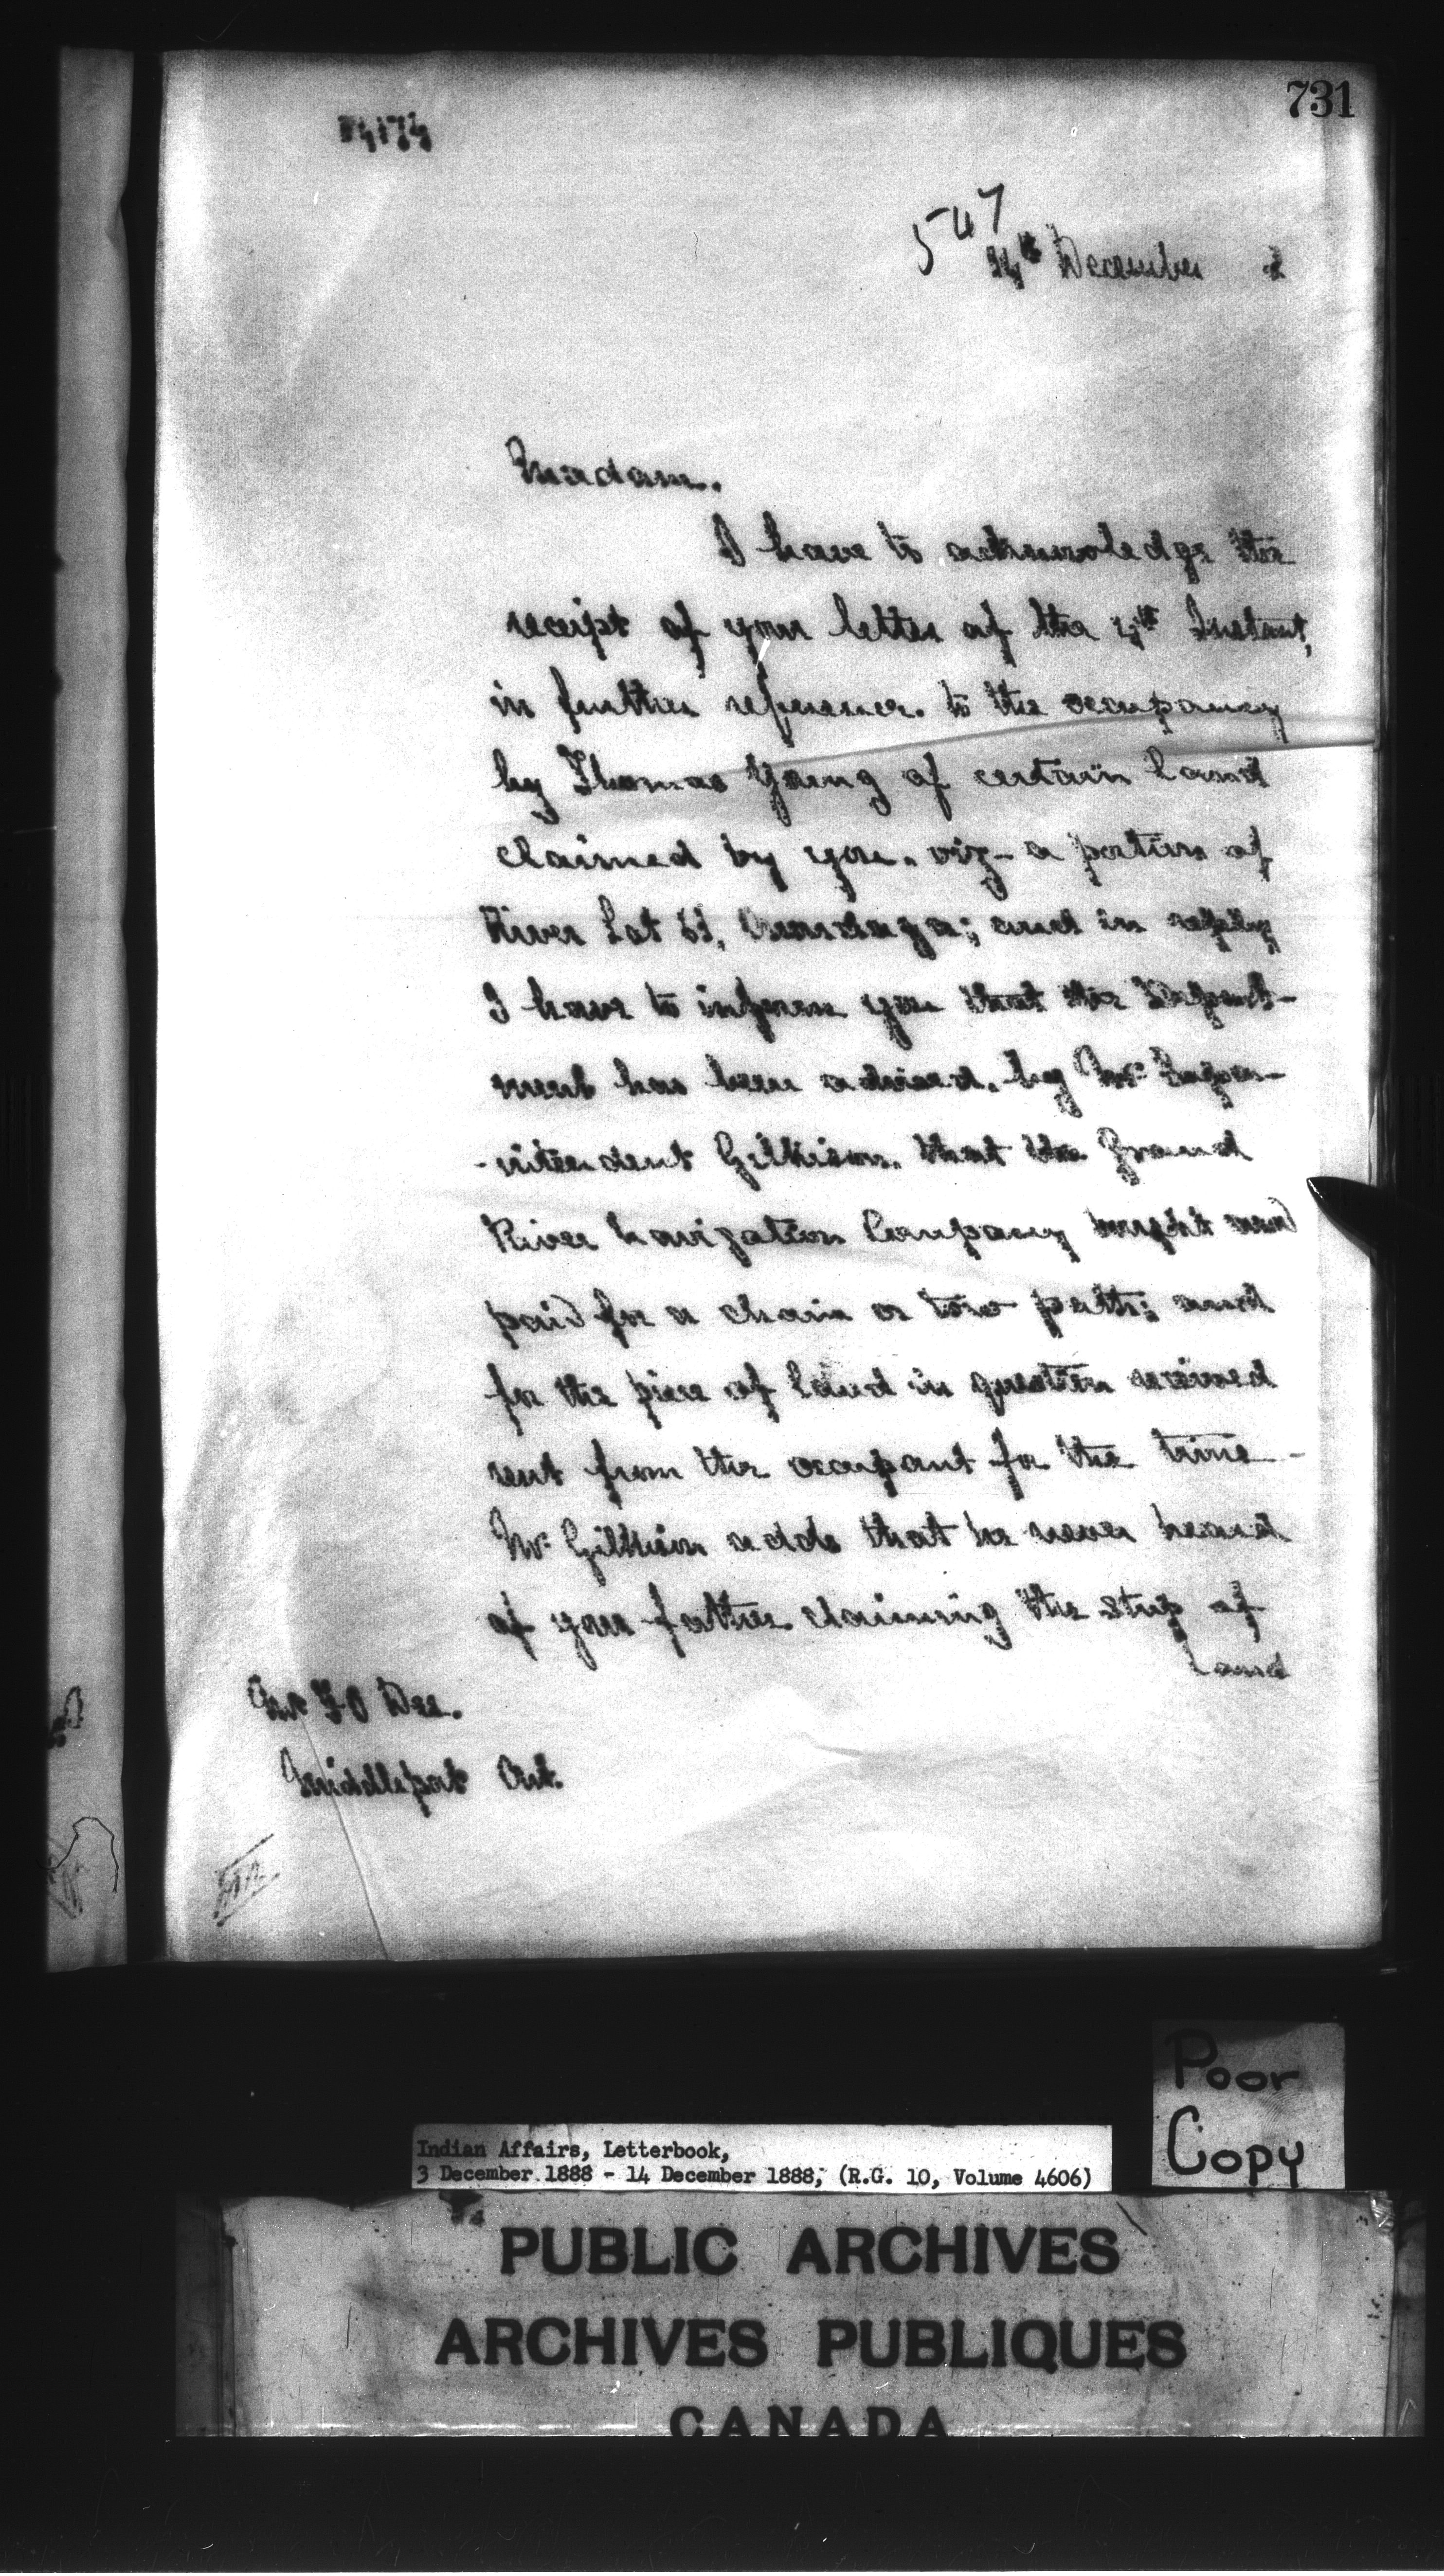 731
547
14th December
Madam.
I have to acknowledge the
receipt of your letter of the 4th Instant,
in further reference to the occupancy
by Thomas Young of certain land
claimed by you. viz- a portion of
River Lot 61, Onondaga; and in reply
I have to inform you that the Depart-
ment has been advised, by Mr. Superin-
-intendent Gilkison. that the Grand
River Navigation Company bought and
paid for a chain as tow path; and
for the piece of land in question received
rent from the occupant for the time
Mr. Gilkison adds that he never heard
of your father claiming the strip of
land
Mrs Dee.
Middleport Ont.
Poor
Copy
Indian Affairs, Letterbook,
3 December 1888 - 14 December 1888, (R.G. 10, Volume 4606)
PUBLIC ARCHIVES
ARCHIVES PUBLIQUES
CANADA